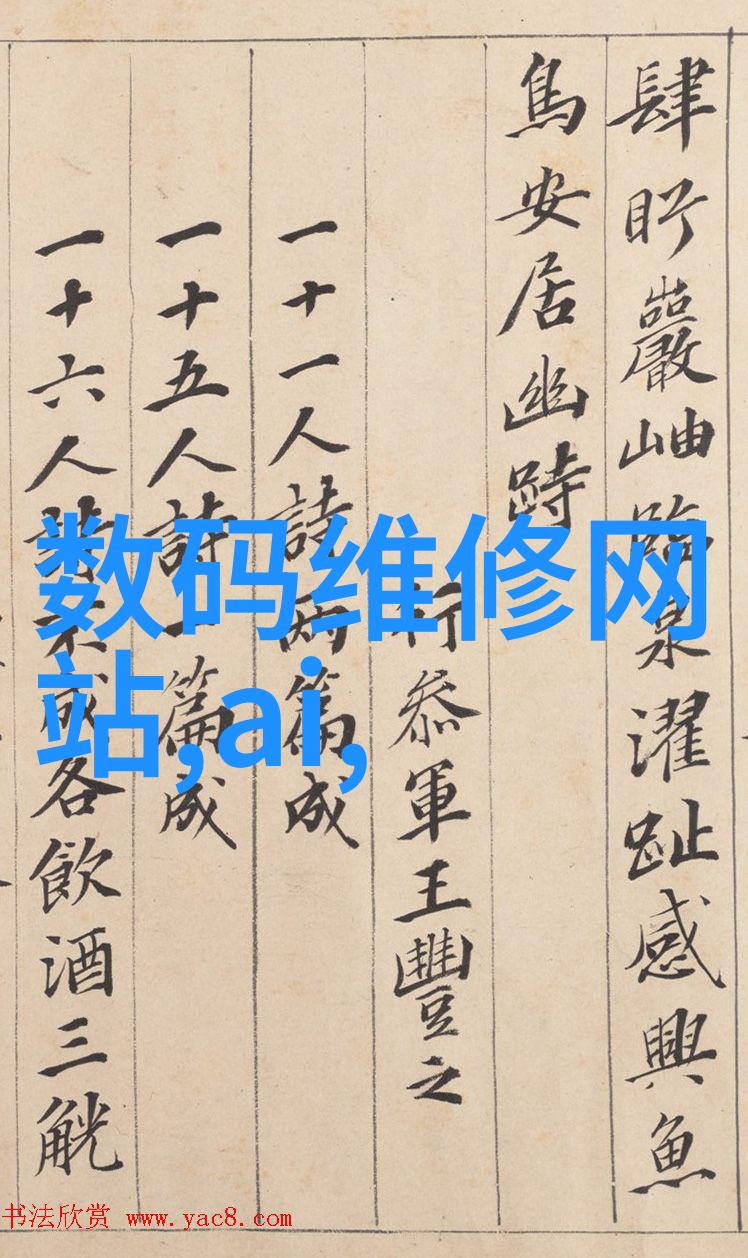 肆盻巖岫臨泉濯趾感興魚
鳥安居幽跱
行叅軍王豐之
一十一人詩兩篇成
一十五人詩一篇成
一十六人詩不成各飲酒三觥
数码维修网
站,ai,
书法欣赏 www.yac8.com